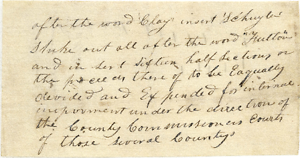 after the word Clay insert Schuyler
strike out all after the word "Fulton"
and insert fifteen half sections or
the proceeds there of to be Equally
devided and Expended for internal
improvement under the direction of
the County Commissioners Courts
of those several Countys